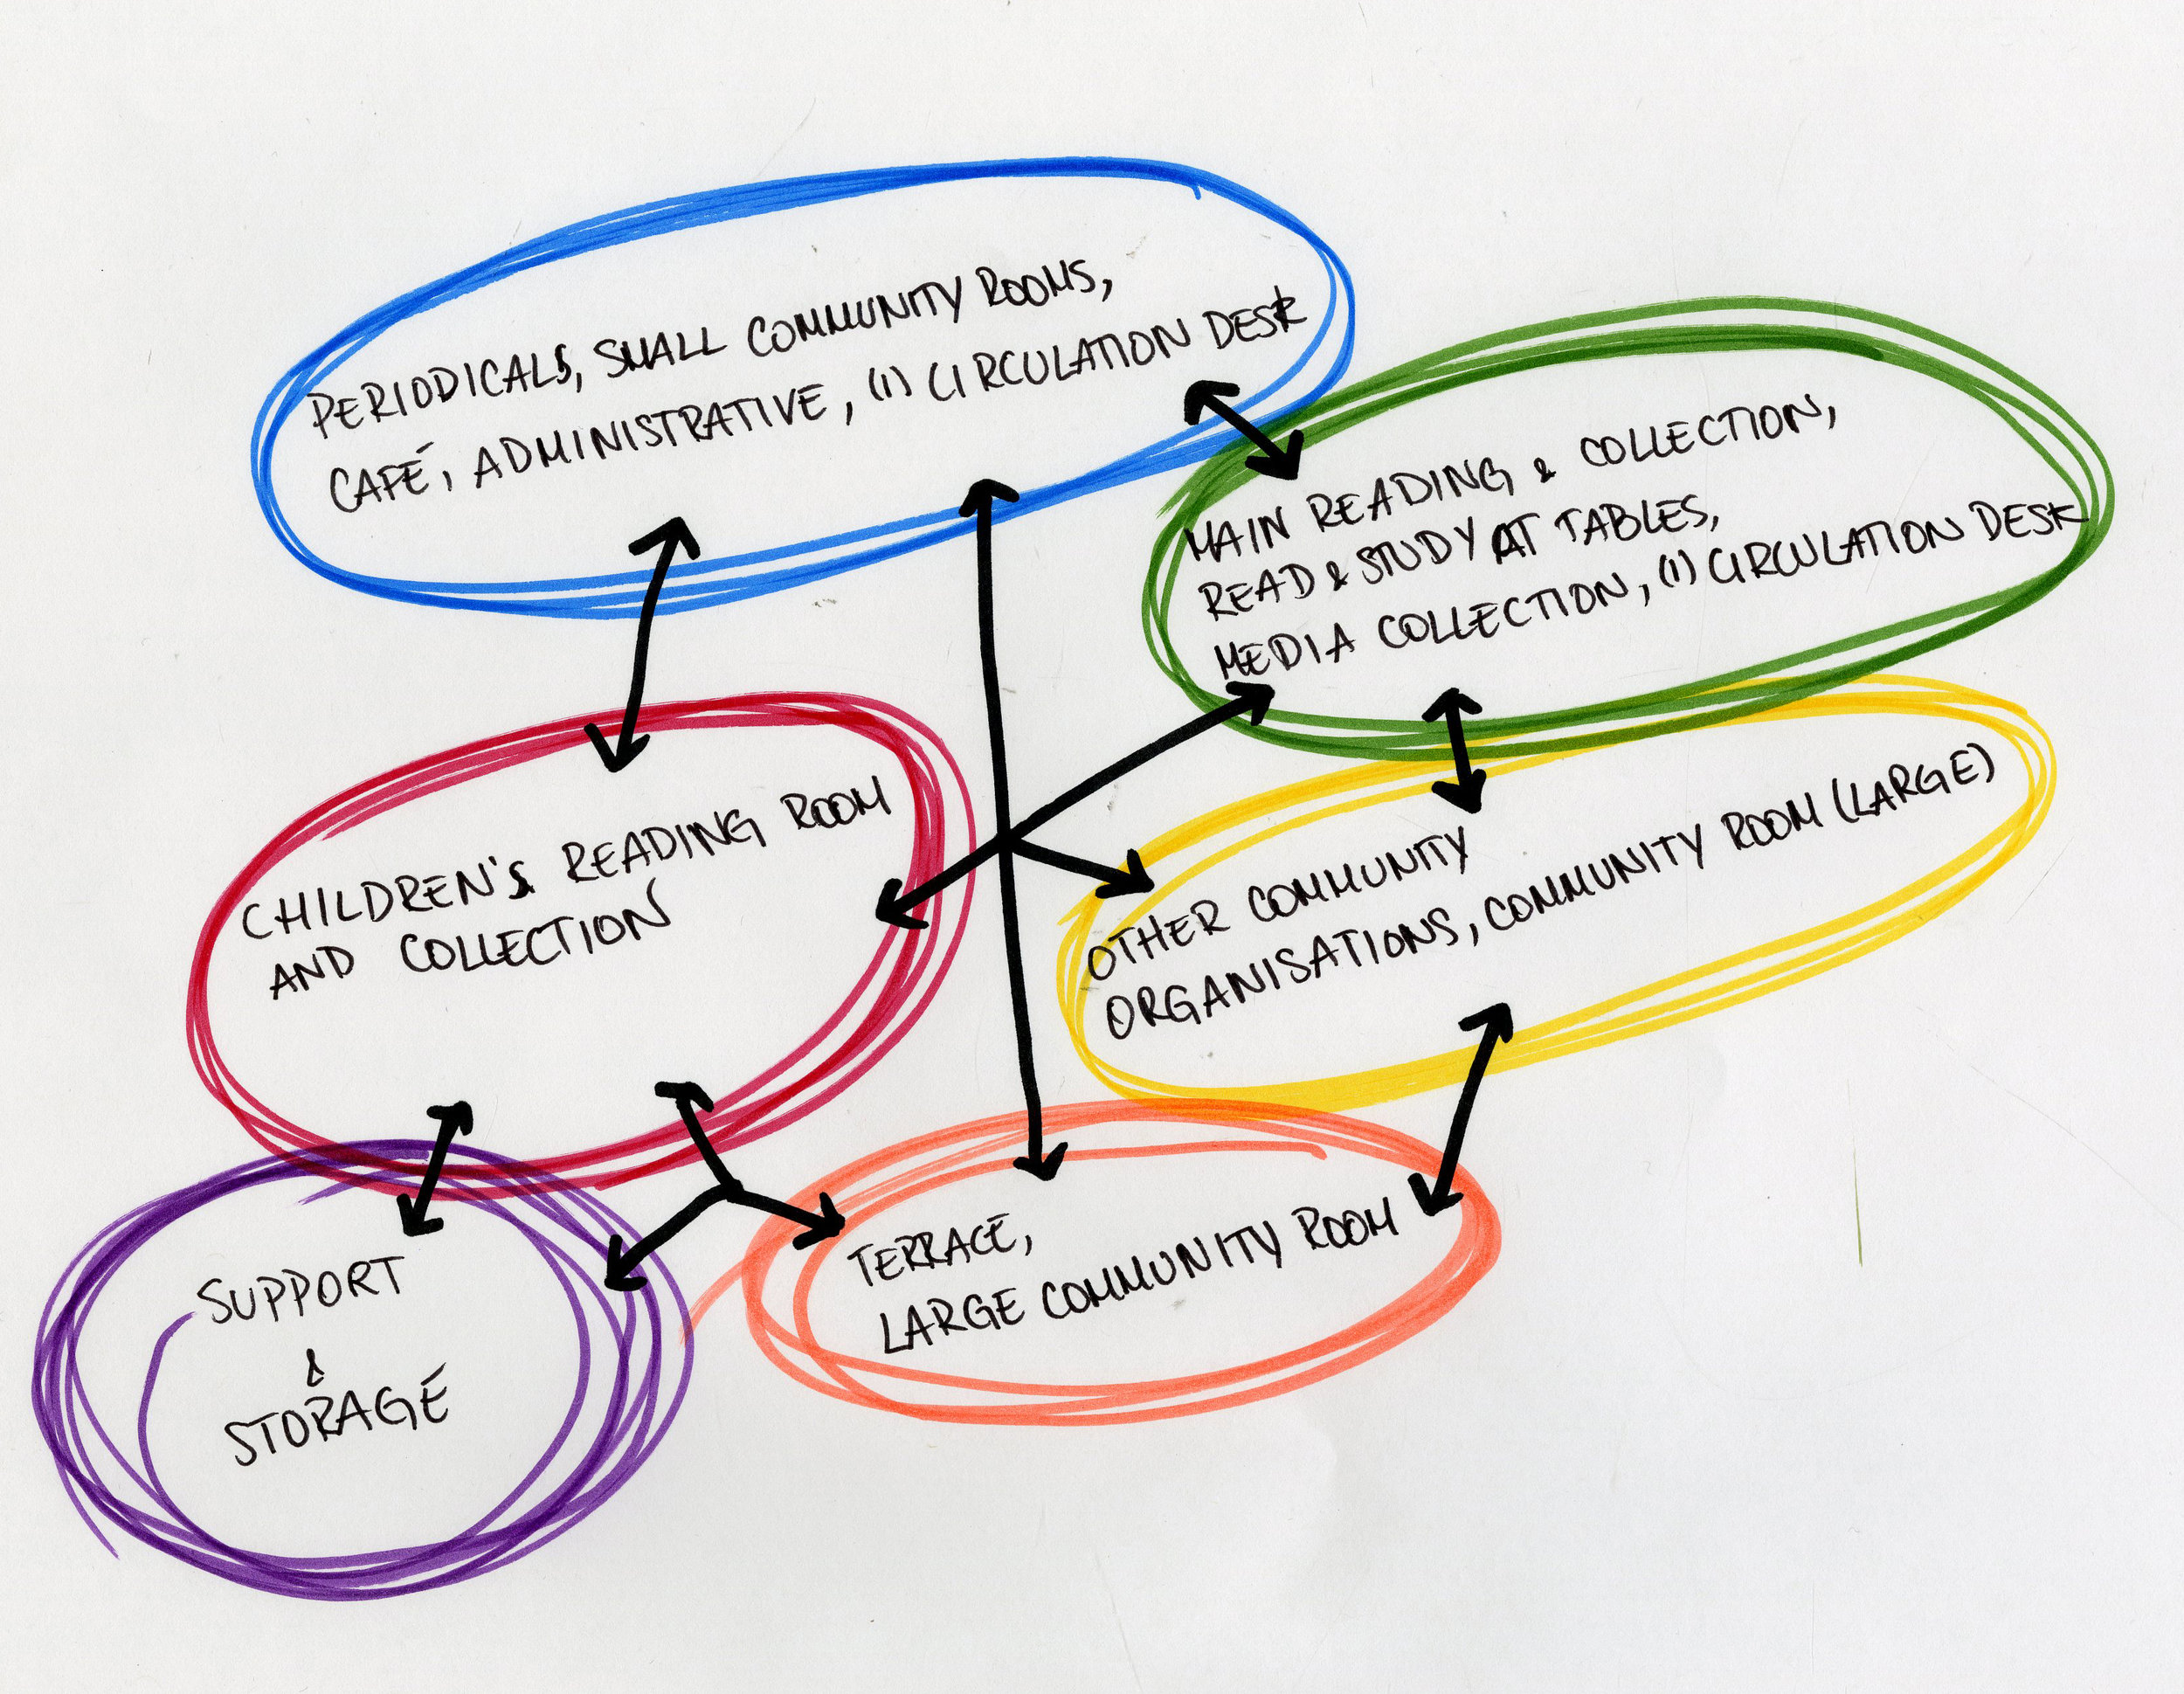 PERIODICALS, SMALL COMMUNITY ROOMS,
CAFÉ, ADMINISTRATIVE, (1) CIRCULATION DESK
MAIN READING & COLLECTION,
READ & STUDY AT TABLES,
MEDIA COLLECTION, (1) CIRCULATION DESK
CHILDREN'S READING ROOM
AND COLLECTION
OTHER COMMUNITY
ORGANISATIONS, COMMUNITY ROOM (LARGE)
TERRACE,
LARGE COMMUNITY ROOM
SUPPORT
&
STORAGE